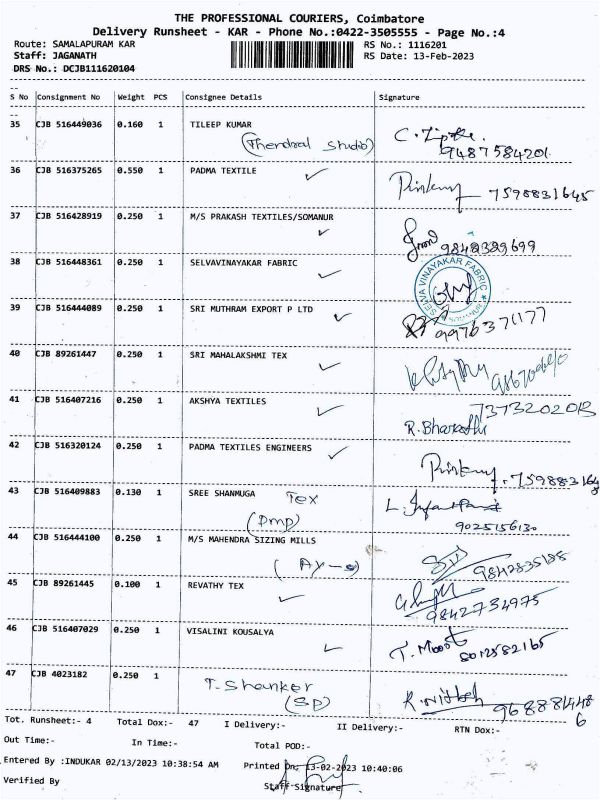 THE PROFESSIONAL COURIERS, Coimbatore
Delivery Runsheet - KAR - Phone No.:0422-3505555 - Page No.:4
Route: SAMALAPURAM KAR RS No.: 1116201
Staff: JAGANATH RS Date: 13-Feb-2023
DRS No.: DCJB111620104
S No Consignment No Weight PCS Consignee Details Signature
35 CJB 516449036 0.160 1 TILEEP KUMAR
(Thendral studio) 9487584201
36 CJB 516375265 0.550 1 PADMA TEXTILE
7598831645
37 CJB 516428919 0.250 1 M/S PRAKASH TEXTILES/SOMANUR
9842389699
38 CJB 516448361 0.250 1 SELVAVINAYAKAR FABRIC
SELVA VINAYAKAR FABRIC
39 CJB 516444089 0.250 1 SRI MUTHRAM EXPORT P LTD
9976371177
40 CJB 89261447 0.250 1 SRI MAHALAKSHMI TEX
41 CJB 516407216 0.250 1 AKSHYA TEXTILES
7373202013
R. Bharathi
42 CJB 516320124 0.250 1 PADMA TEXTILES ENGINEERS
43 CJB 516409883 0.130 1 SREE SHANMUGA Tex
(Dmp) 9025156130
44 CJB 516444100 0.250 1 M/S MAHENDRA SIZING MILLS
9842835185
45 CJB 89261445 0.100 1 REVATHY TEX
9842734975
46 CJB 516407029 0.250 1 VISALINI KOUSALYA
8012582165
47 CJB 4023182 0.250 1
T. Shanker
(SP)
Tot. Runsheet:- 4 Total Dox:- 47 I Delivery:- II Delivery:- RTN Dox:-
Out Time:- In Time:- Total POD:-
Entered By :INDUKAR 02/13/2023 10:38:54 AM Printed On: 13-02-2023 10:40:06
Verified By Staff-Signature